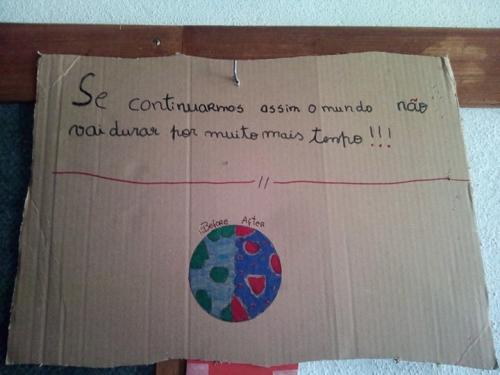 Se continuarmos assim o mundo não
vai durar por muito mais tempo!!!
Before After